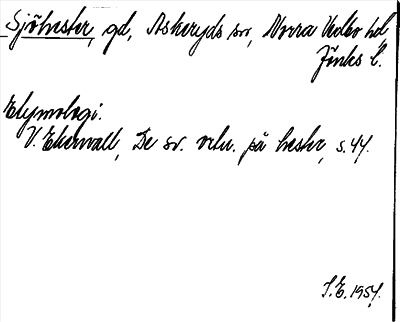 Sjöhester, gd, Askeryds sn, Norra Vedbo hd,
Jönk. l.
Etymologi.
V. Ekenvall, De sv. ortn. på hester, s. 44.
S.E. 1957.